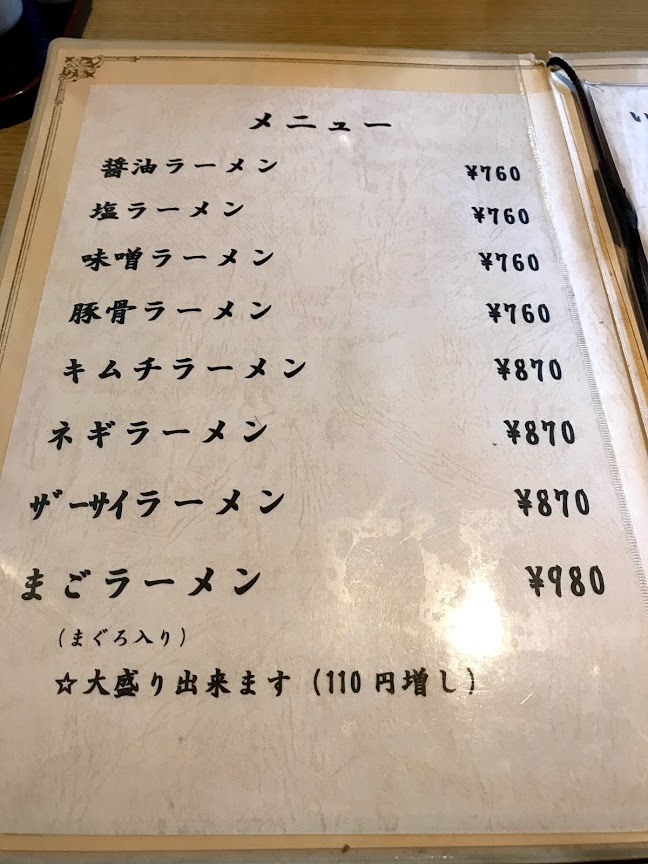 メニュー
醤油ラーメン ¥760
塩ラーメン ¥760
味噌ラーメン ¥760
豚骨ラーメン ¥760
キムチラーメン ¥870
ネギラーメン ¥870
ザーサイラーメン ¥870
まごラーメン ¥980
(まぐろ入り)
☆大盛り出来ます (110円増し)